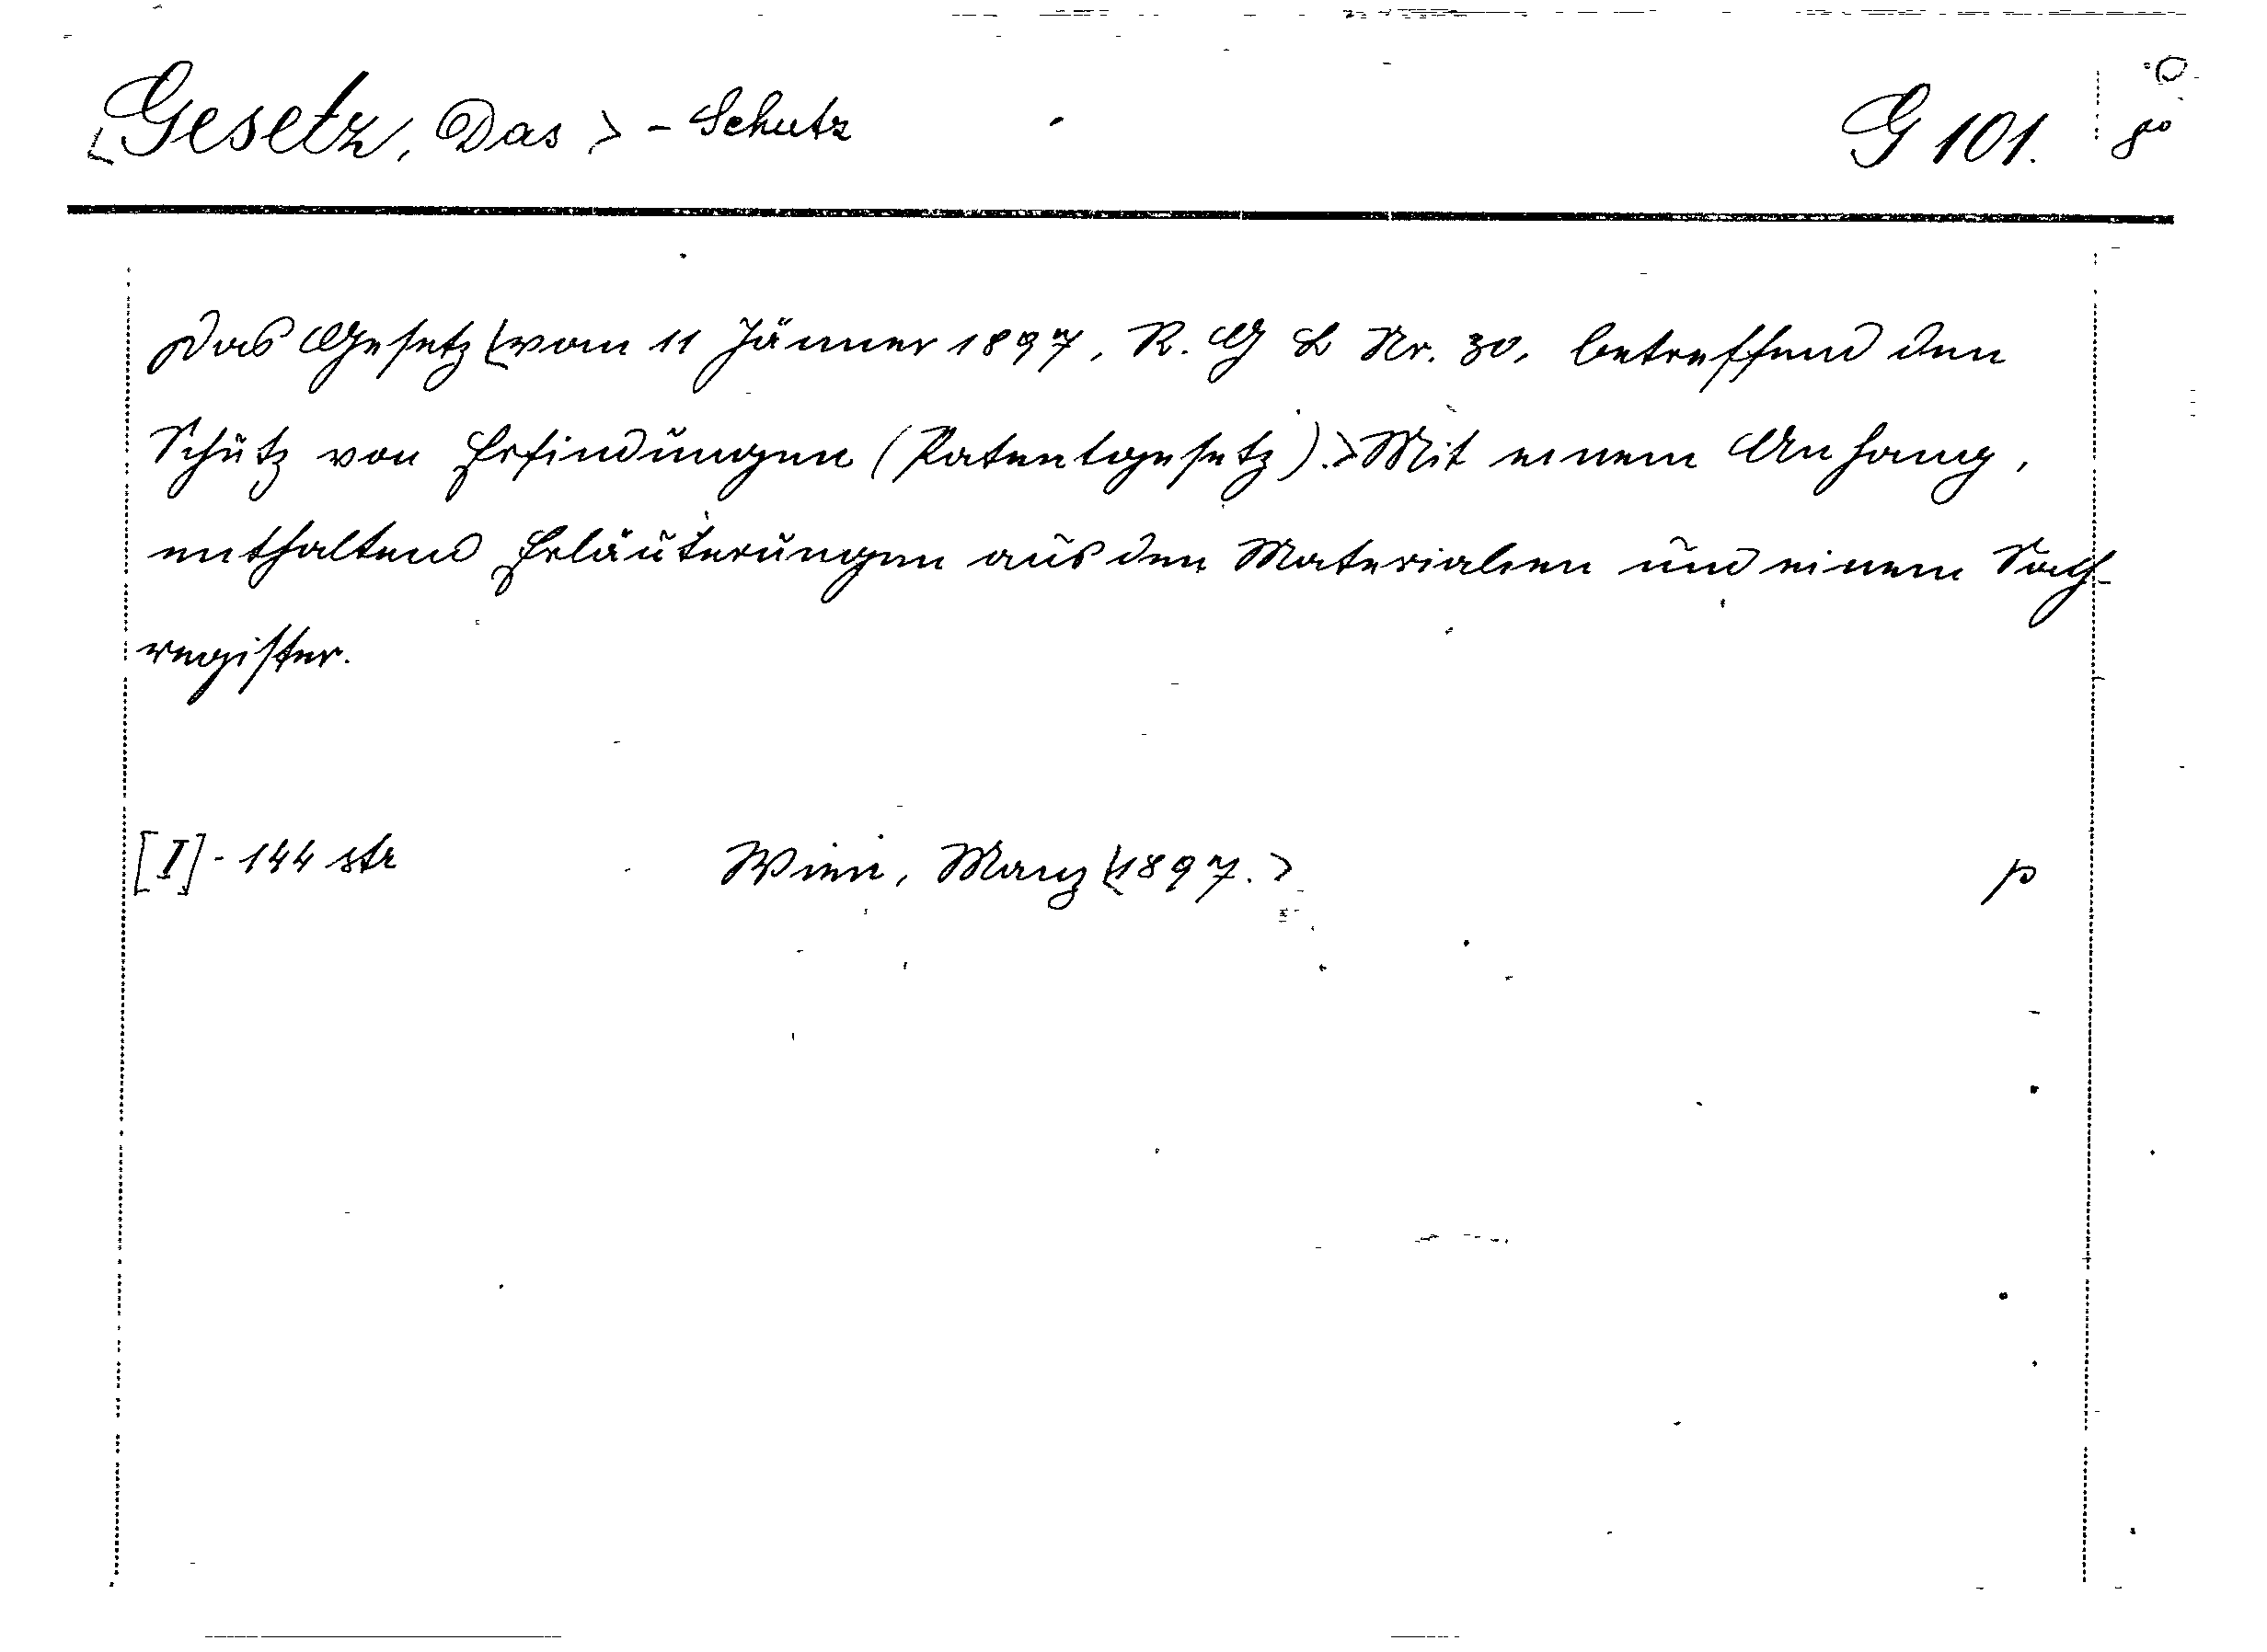 <Gesetz, Das> - Schutz G 101. 8°
Das Gesetz <vom 11 Jänner 1897, R. G B Nr. 30, betreffend den
Schutz von Erfindungen (Patentgesetz).> Mit einem Anhang,
enthaltend Erläuterungen aus den Materialien und einem Sach-
register.
[I] - 144 str Wien, Manz <1897.> p